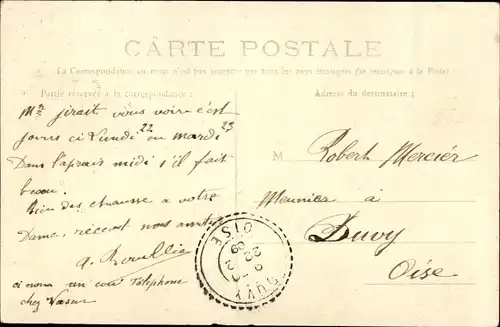 CARTE POSTALE
La Correspondance au recto n'est pas acceptée par tous les pays étrangers (se renseigner à la Poste)
Partie réservée à la correspondance :
Adresse du destinataire :
Mr jirait vous voire c'est
jours ci Lundi 22 ou Mardi 23
Dans l'aprais midi s'il fait
beau.
Bien des chausse a votre
Dame, récevez nous amitiés
ci nous un coup Téléphone
chez Vasseur
M Robert Mercier
Meunier à
Duvy
Oise
DUVY
OISE